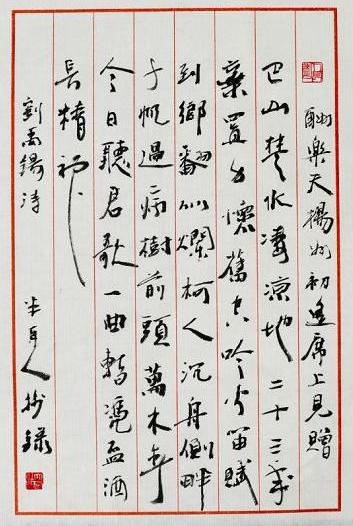 酬樂天揚州初逢席上見贈
巴山楚水淒涼地二十三年
棄置身懷舊空吟聞笛賦
到鄉翻似爛柯人沉舟側畔
千帆過病樹前頭萬木春
今日聽君歌一曲暫憑盃酒
長精神
劉禹錫詩 半人抄錄